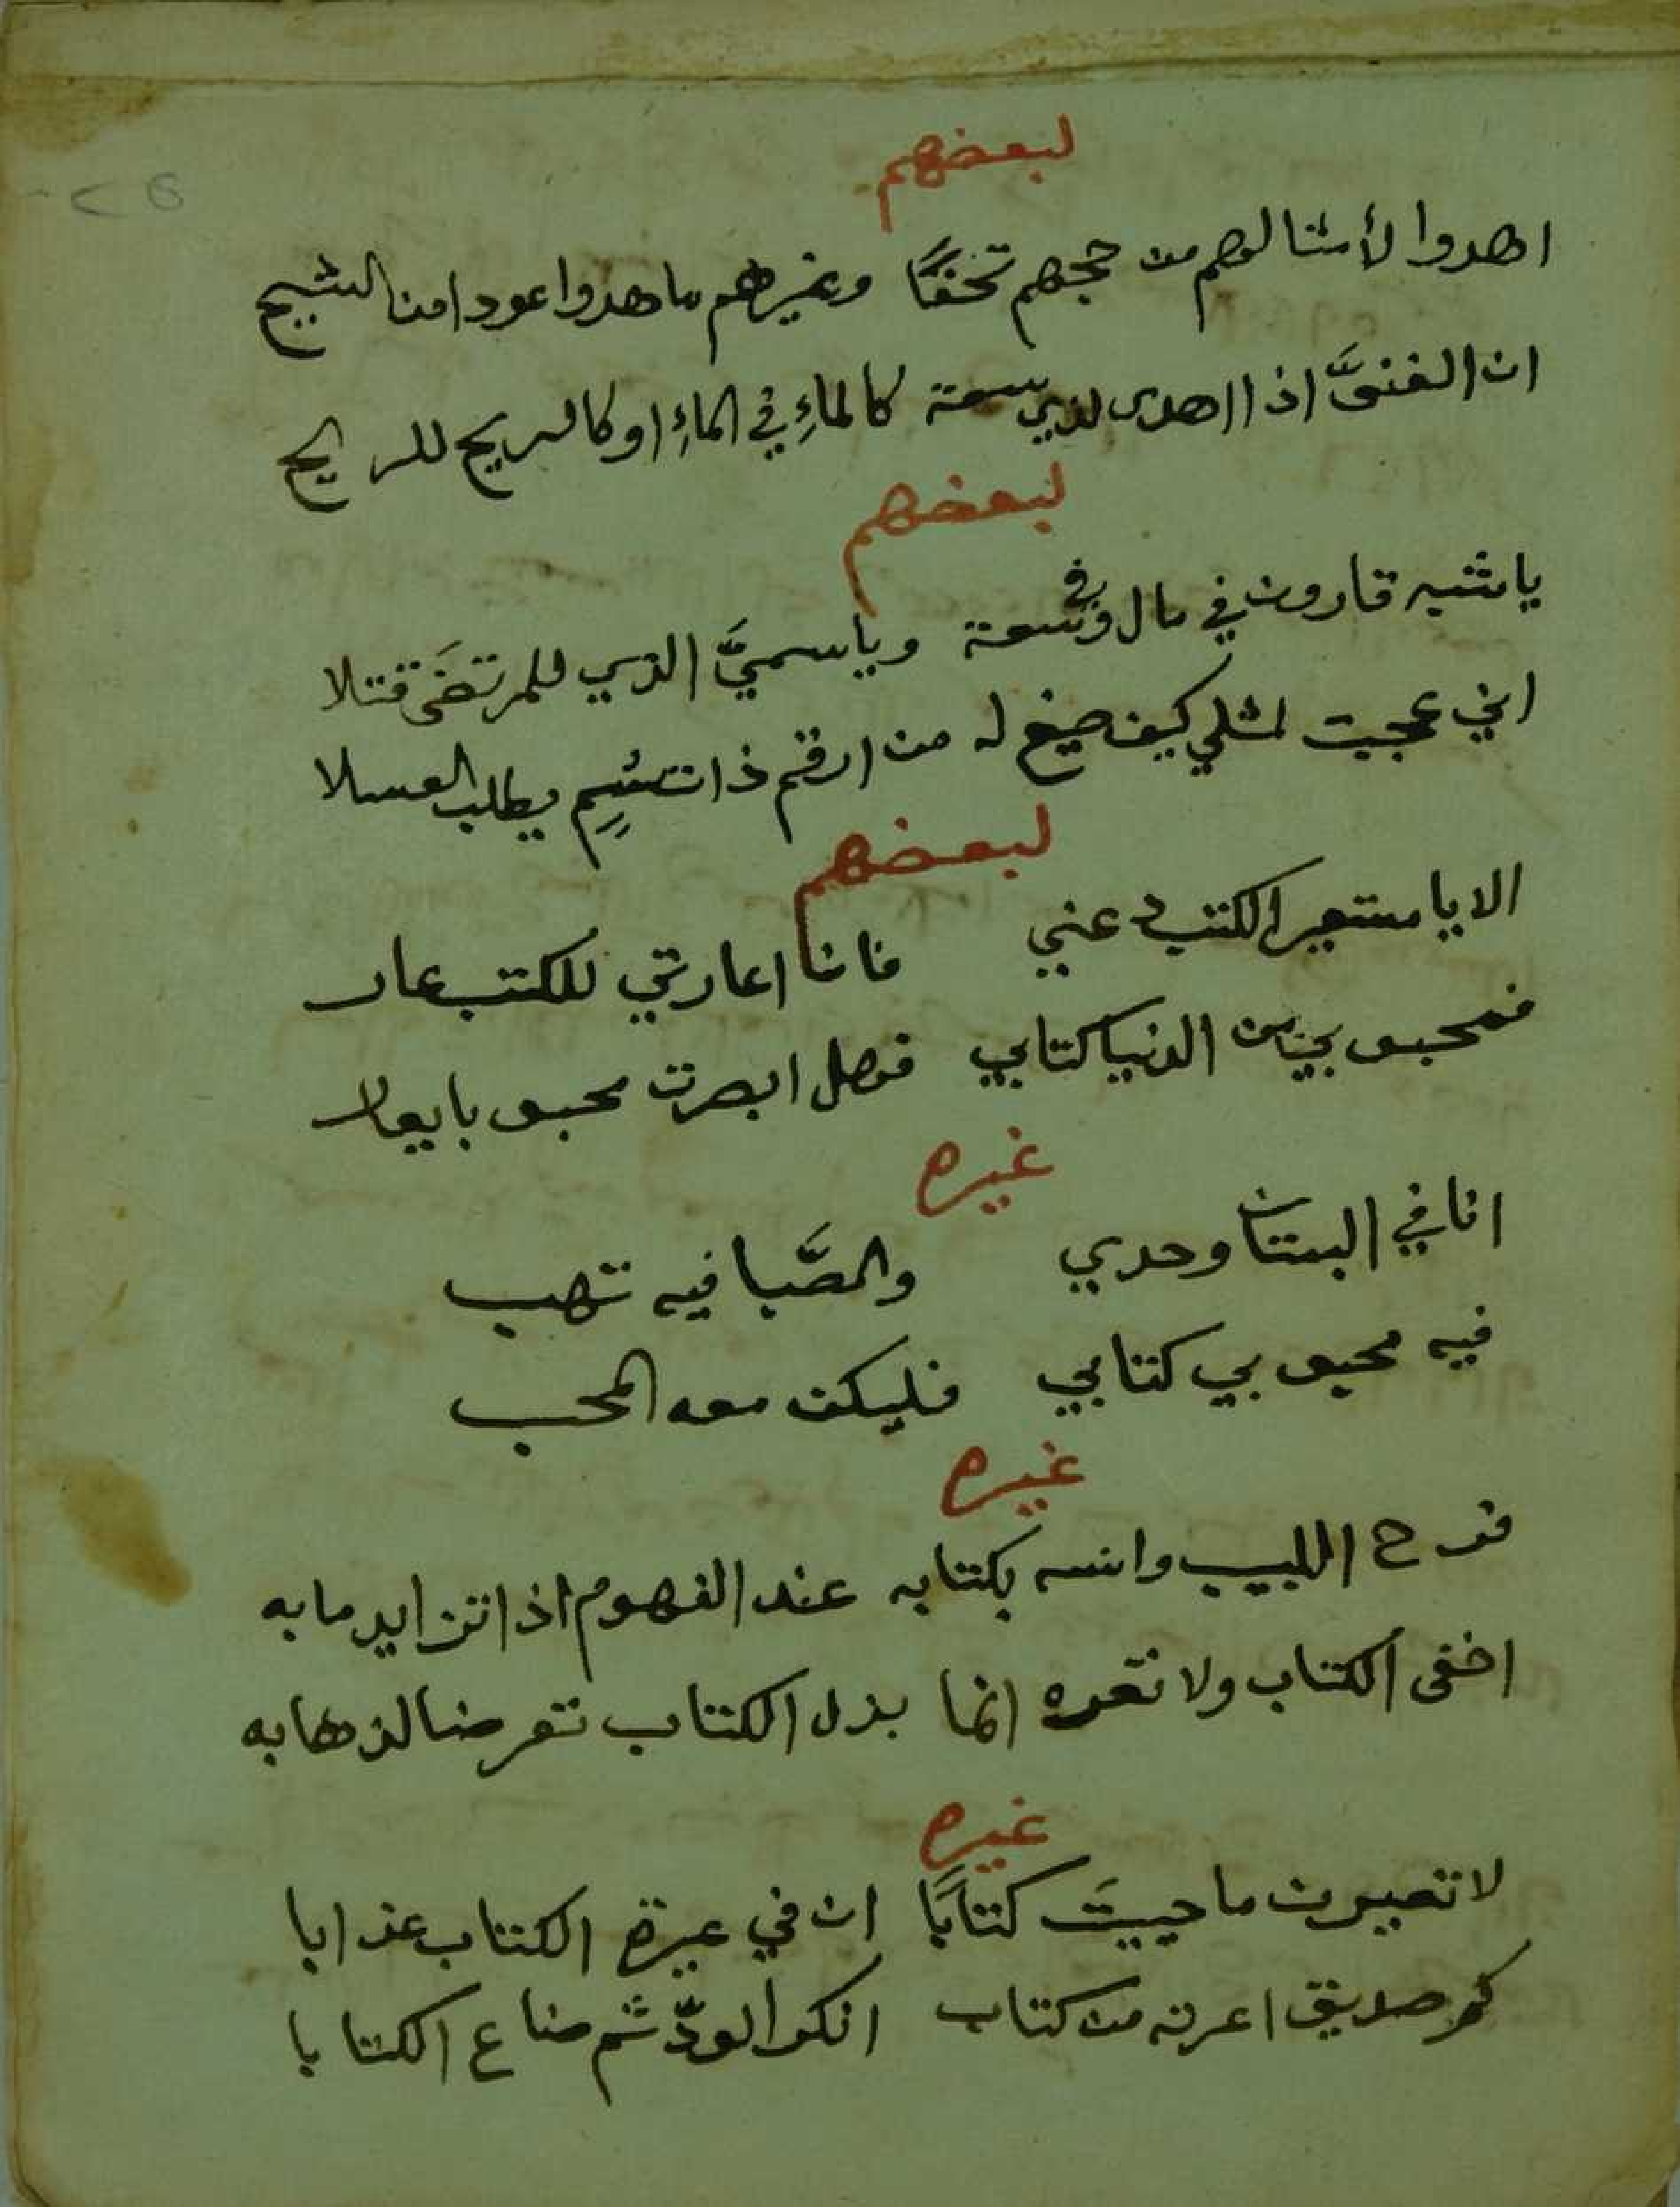 لبعضهم
اهدوا لأمثالهم من حجهم تحفًا وغيرهم ما هدوا عودا من الشيح
ان الغنىَّ اذا اهدى لذي سعة كالماءِ في الماءِ او كالريح للريح
لبعضهم
يا شبه قارون في مال وفي سعة ويا سميَّ الذي للمرتضَى قتلا
اني عجبت لمثلي كيف صيغ له من ارقم ذات سُمٍ يطلب العسلا
لبعضهم
الا يا مستعير الكتب عني فانا اعارتي للكتب عار
فمحبوبي من الدنيا كتابي فهل ابصرت محبوبا يعار
غيره
انا في البستان وحدي والصَّبا فيه تهب
فيه محبوبي كتابي فليكن معه المحب
غيره
فرح اللبيب وانسه بكتابه عند الفهوم اذا تزايد ما به
اخفى الكتاب ولا تعره انما بذل الكتاب تعرضا لذهابه
غيره
لا تعيرن ما حييتَ كتابًا ان في عيرة الكتاب عذابا
كم صديق اعرته من كتاب انكر الودّ ثم ضاع الكتابا